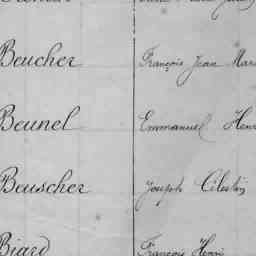 Beucher François Jean
Beunel Emmanuel
Beuscher Joseph Célestin
Biard François Henri